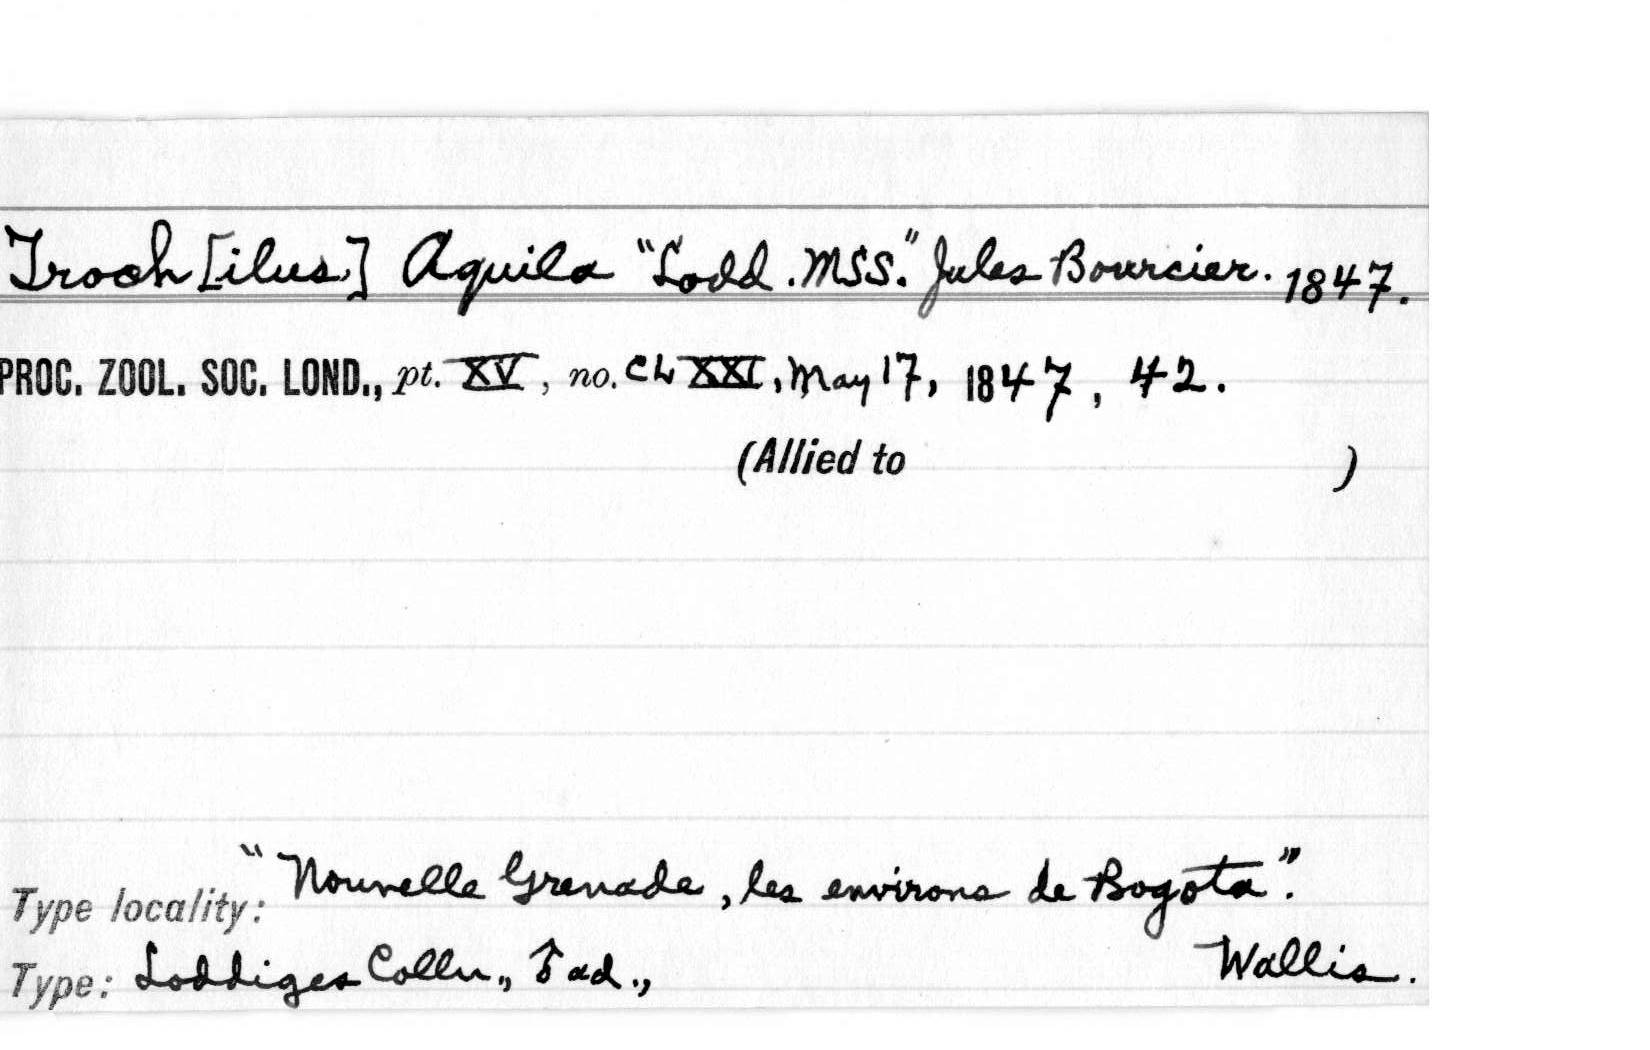 Troch[ilus.] Aquila "Lodd. MSS." Jules Bourcier. 1847.
PROC. ZOOL. SOC. LOND., pt. XV, no. CLXXI, May 17, 1847, 42.
(Allied to )
Type locality: "Nouvelle Grenade, les environs de Bogota".
Type: Loddiges Colln., ♂ ad., Wallis.